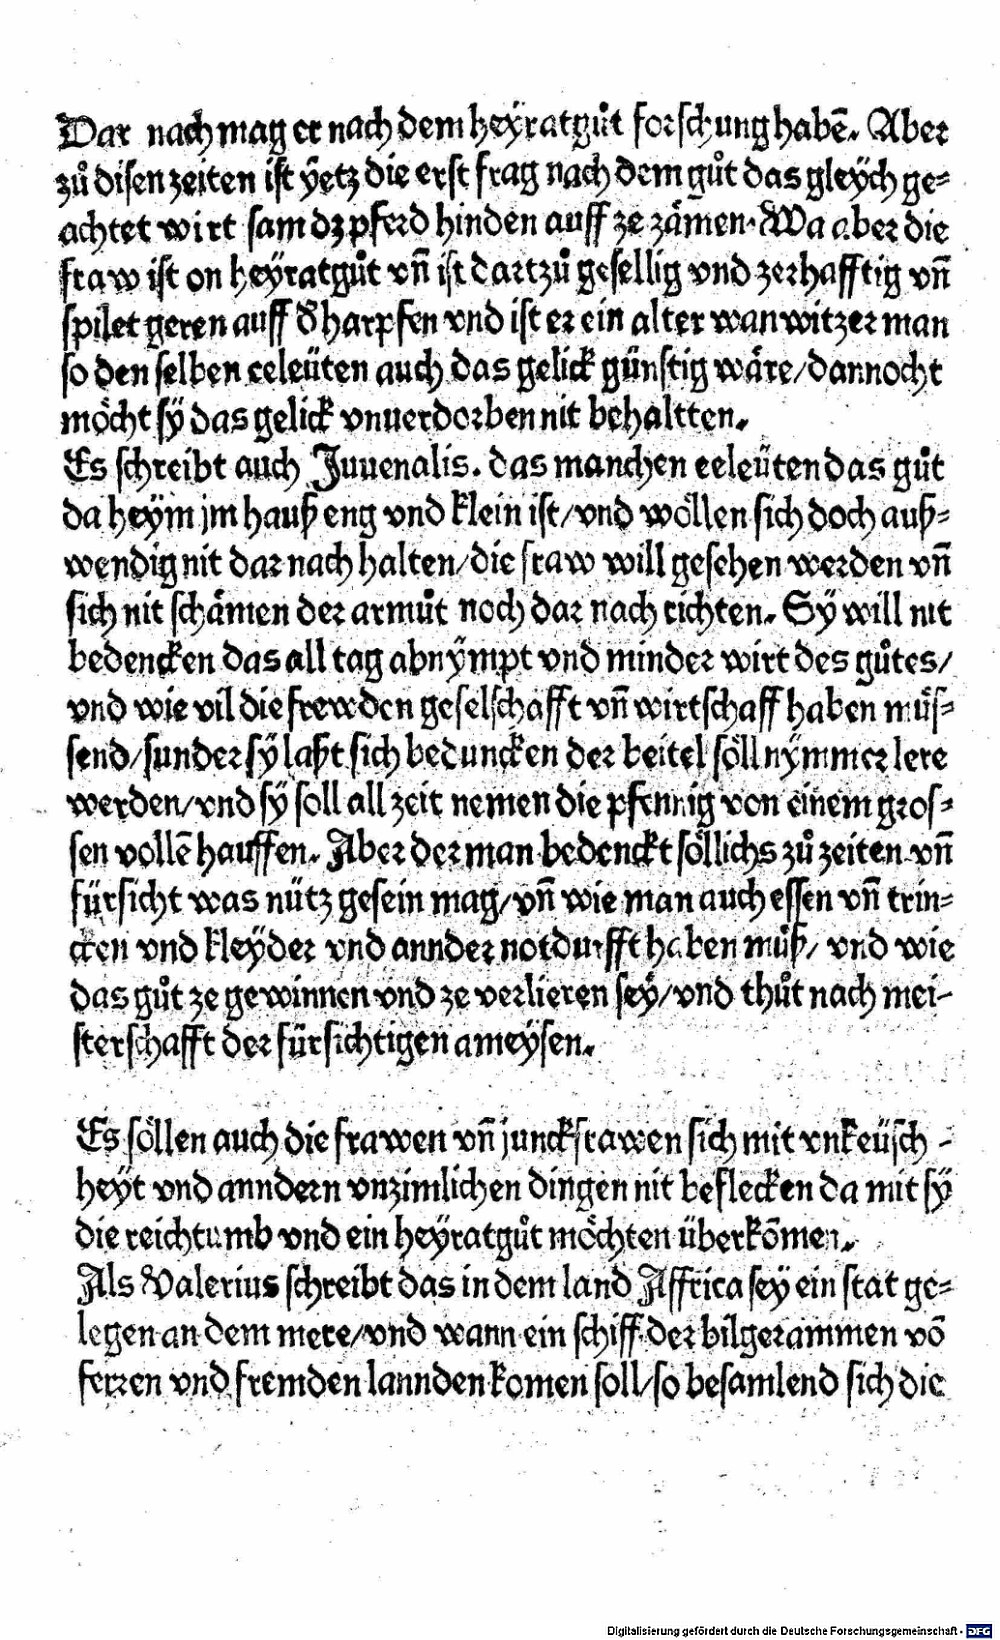 Dar nach mag er nach dem heÿratgůt forschung habē. Aber
zů disen zeiten ist ÿetz die erst frag nach dem gůt das gleÿch ge⸗
achtet wirt sam dz pferd hinden auff ze zämen. Wa aber die
fraw ist on heÿratgůt vn̄ ist dartzů gesellig vnd zerhafftig vn̄
spilet geren auff d̕ harpfen vnd ist er ein alter wanwitzer man
so den selben eeleüten auch das gelick günstig wäre/dannocht
möcht sÿ das gelick vnuerdorben nit behaltten.
Es schreibt auch Juuenalis. das manchen eeleüten das gůt
da heÿm jm hauß eng vnd klein ist/vnd wöllen sich doch auß⸗
wendig nit dar nach halten/die fraw will gesehen werden vn̄
sich nit schämen der armůt noch dar nach richten. Sÿ will nit
bedencken das all tag abnÿmpt vnd minder wirt des gůtes/
vnd wie vil die frewden geselschafft vn̄ wirtschaff haben müs⸗
send/sunder sÿ laßt sich beduncken der beitel söll nÿmmer lere
werden/vnd sÿ soll all zeit nemen die pfennig von einem gros⸗
sen vollē hauffen. Aber der man bedenckt söllichs zů zeiten vn̄
fürsicht was nütz gesein mag/vn̄ wie man auch essen vn̄ trin⸗
cken vnd kleÿder vnd annder notdurfft haben můß/ vnd wie
das gůt ze gewinnen vnd ze verlieren seÿ/vnd thůt nach mei⸗
sterschafft der fürsichtigen ameÿsen.
Es söllen auch die frawen vn̄ junckfrawen sich mit vnkeüsch⸗
heÿt vnd anndern vnzimlichen dingen nit beflecken da mit sÿ
die reichtumb vnd ein heÿratgůt möchten überkōmen.
Als Valerius schreibt das in dem land Affrica seÿ ein stat ge⸗
legen an dem mere/vnd wann ein schiff der bilgerammen vō
ferren vnd fremden lannden komen soll/so besamlend sich die
Digitalisierung gefördert durch die Deutsche Forschungsgemeinschaft - DFG